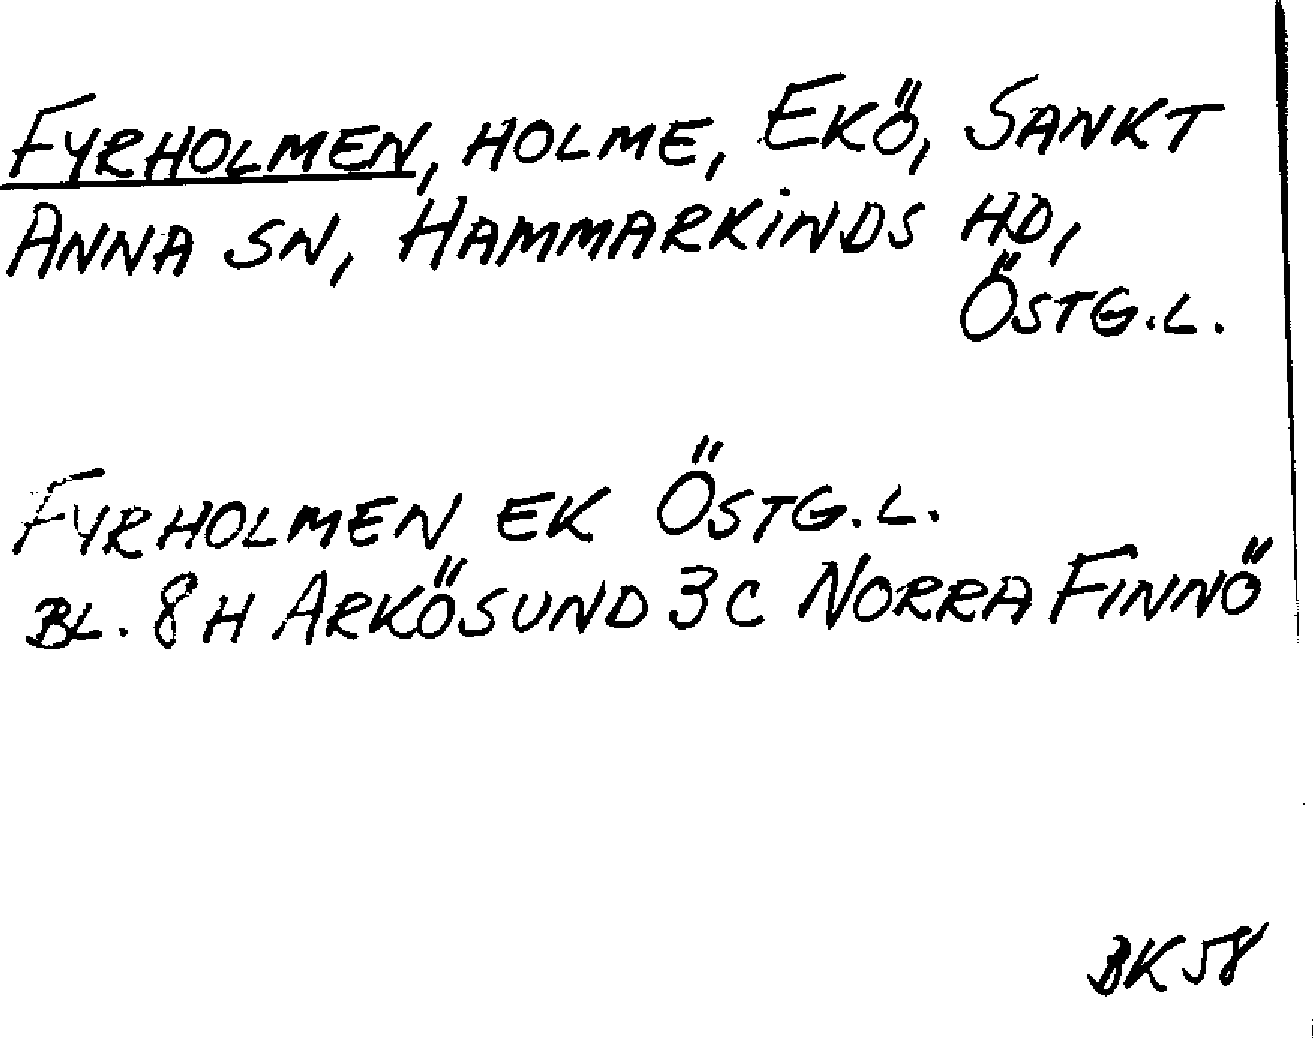 FYRHOLMEN, HOLME, EKÖ, SANKT
ANNA SN, HAMMARKINDS HD,
ÖSTG.L.
FYRHOLMEN EK ÖSTG.L.
BL. 8H ARKÖSUND 3C NORRA FINNÖ
BK 58